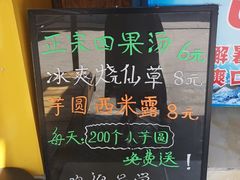 正宗四果汤 6元
冰爽烧仙草 8元
芋圆西米露 8元
每天:200个小芋圆
免费送!
欢迎品尝